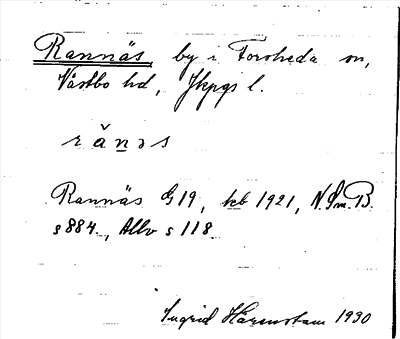 Rannäs by i Forsheda sn,
Västbo hd, Jkpgs l.
r ǎ n ə s
Rannäs G19, kb 1921, N.Sm.B.
s 884, Allv s 118.
Ingrid Härenstam 1930